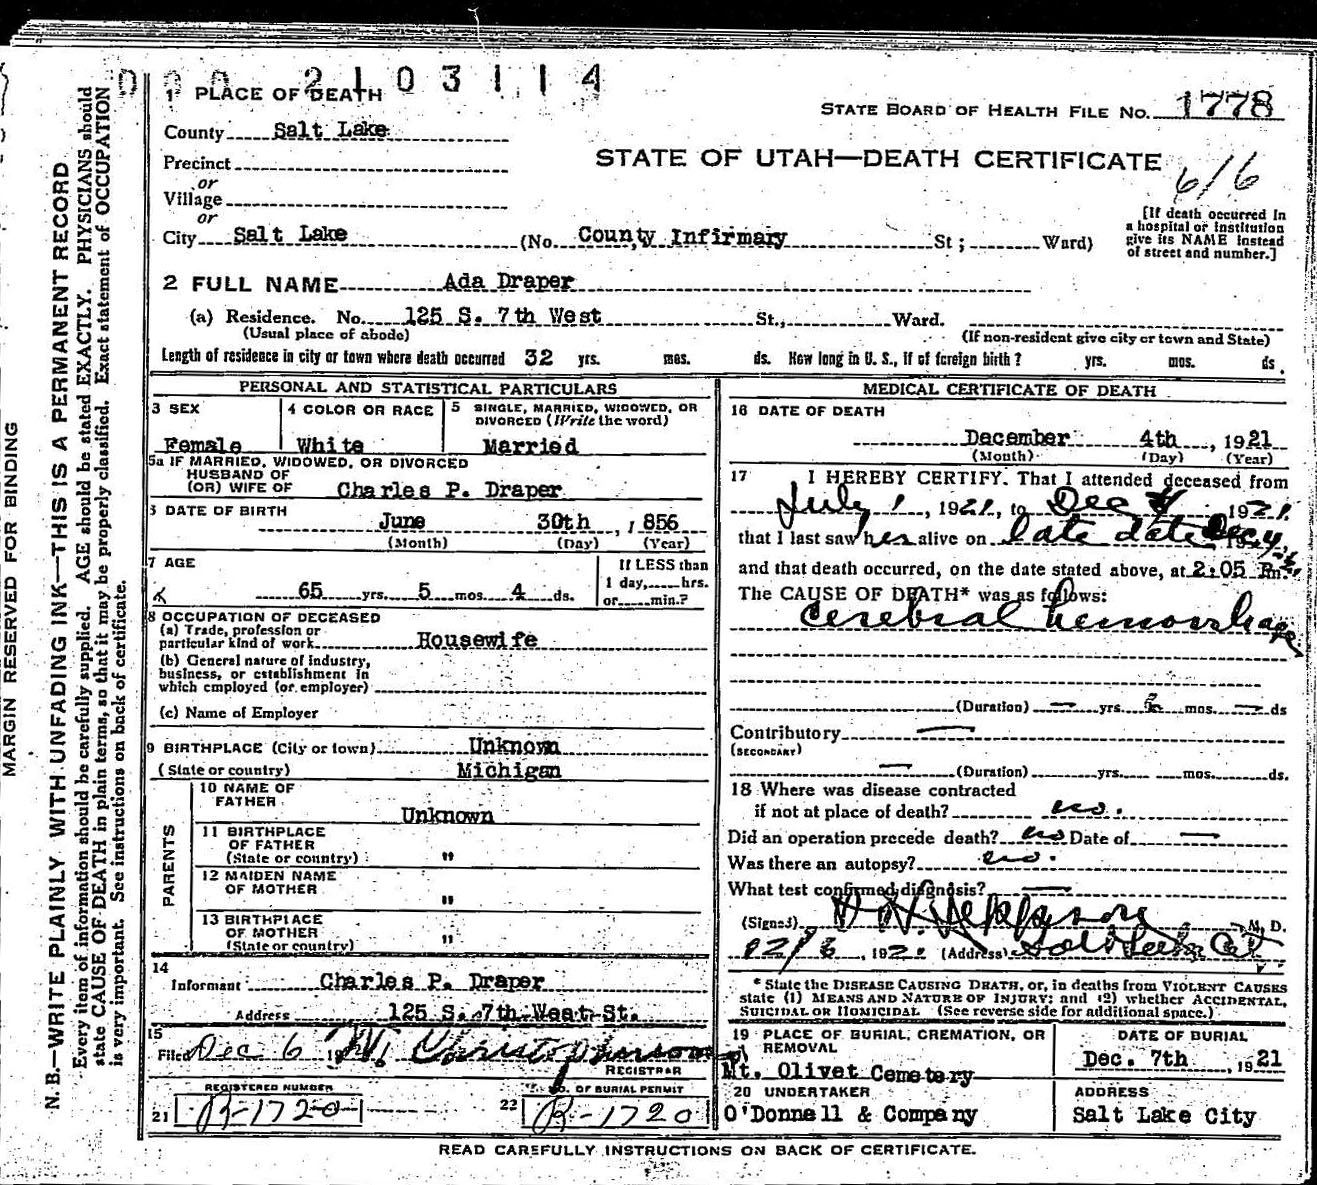 2103114
1 PLACE OF DEATH
STATE BOARD OF HEALTH FILE NO. 1778
County Salt Lake
Precinct
or
Village
or
City Salt Lake (No. County Infirmary St; Ward)
STATE OF UTAH—DEATH CERTIFICATE
6/6
[If death occurred in
a hospital or institution
give its NAME instead
of street and number.]
2 FULL NAME Ada Draper
(a) Residence. No. 125 S. 7th West St., Ward.
(Usual place of abode) (If non-resident give city or town and State)
Length of residence in city or town where death occurred 32 yrs. mos. ds. How long in U. S., if of foreign birth? yrs. mos. ds.
PERSONAL AND STATISTICAL PARTICULARS
3 SEX
Female
4 COLOR OR RACE
White
5 SINGLE, MARRIED, WIDOWED, OR
DIVORCED (Write the word)
Married
5a IF MARRIED, WIDOWED, OR DIVORCED
HUSBAND OF
(OR) WIFE OF Charles P. Draper
6 DATE OF BIRTH
June 30th, 1856
(Month) (Day) (Year)
7 AGE
65 yrs. 5 mos. 4 ds.
If LESS than
1 day, hrs.
or min.?
8 OCCUPATION OF DECEASED
(a) Trade, profession or
particular kind of work Housewife
(b) General nature of industry,
business, or establishment in
which employed (or employer)
(c) Name of Employer
9 BIRTHPLACE (City or town) Unknown
(State or country) Michigan
PARENTS
10 NAME OF
FATHER
Unknown
11 BIRTHPLACE
OF FATHER
(State or country) "
12 MAIDEN NAME
OF MOTHER "
13 BIRTHPLACE
OF MOTHER
(State or country) "
14
Informant Charles P. Draper
Address 125 S. 7th West St.
15
Filed Dec 6 192
REGISTRAR
REGISTERED NUMBER
21 R-1720
NO. OF BURIAL PERMIT
22 R-1720
MEDICAL CERTIFICATE OF DEATH
16 DATE OF DEATH
December 4th, 1921
(Month) (Day) (Year)
17 I HEREBY CERTIFY. That I attended deceased from
July 1, 1921, to Dec 4 1921.
that I last saw her alive on late date Dec 4
and that death occurred, on the date stated above, at 2:05 Pm.
The CAUSE OF DEATH* was as follows:
Cerebral hemorrhage
(Duration) — yrs. mos. — ds
Contributory —
(SECONDARY)
— (Duration) yrs. mos. ds.
18 Where was disease contracted
if not at place of death? no.
Did an operation precede death? no Date of —
Was there an autopsy? no.
What test confirmed diagnosis? —
(Signed) M. D.
12/6, 192 (Address) Salt Lake
* State the DISEASE CAUSING DEATH, or, in deaths from VIOLENT CAUSES
state (1) MEANS AND NATURE OF INJURY; and (2) whether ACCIDENTAL,
SUICIDAL OR HOMICIDAL (See reverse side for additional space.)
19 PLACE OF BURIAL, CREMATION, OR
REMOVAL
Mt. Olivet Cemetery
DATE OF BURIAL
Dec. 7th, 1921
20 UNDERTAKER
O'Donnell & Company
ADDRESS
Salt Lake City
READ CAREFULLY INSTRUCTIONS ON BACK OF CERTIFICATE.
MARGIN RESERVED FOR BINDING
N. B.—WRITE PLAINLY WITH UNFADING INK—THIS IS A PERMANENT RECORD
Every item of information should be carefully supplied. AGE should be stated EXACTLY. PHYSICIANS should
state CAUSE OF DEATH in plain terms, so that it may be properly classified. Exact statement of OCCUPATION
is very important. See instructions on back of certificate.